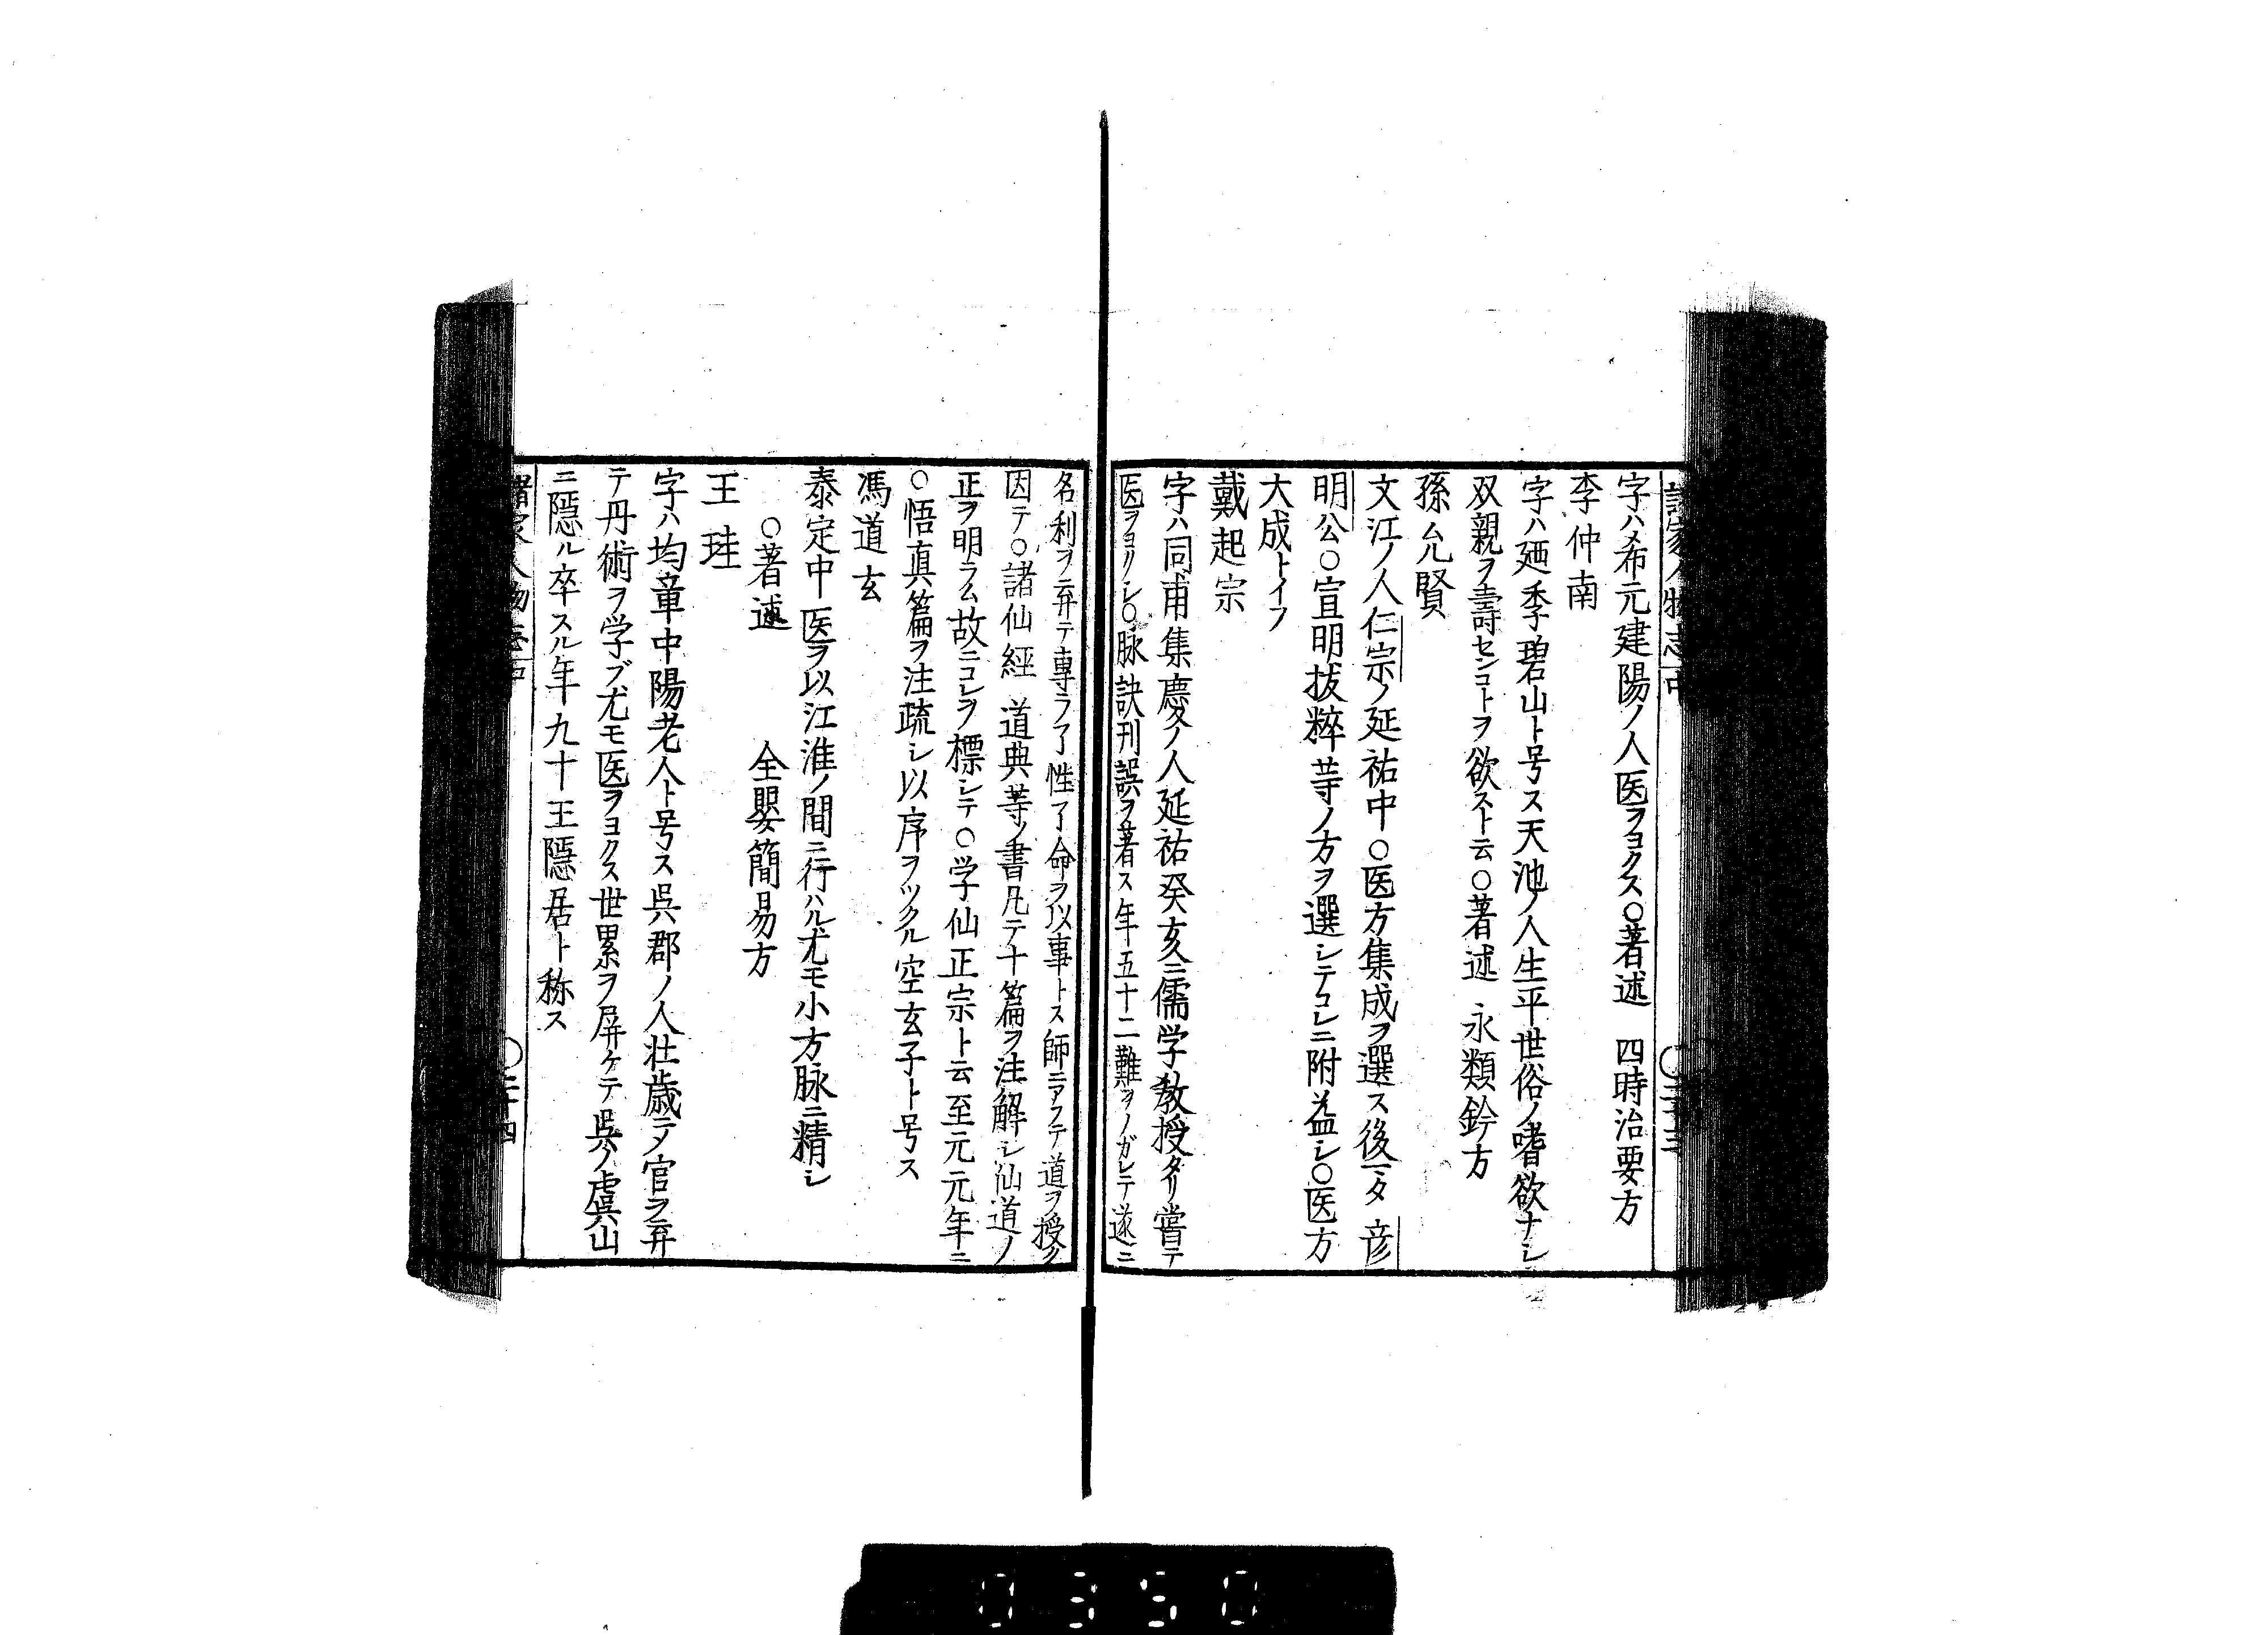 諸家人物志 中 〇二十三
字ハ希元建陽ノ人医ヲヨクス〇著述 四時治要方
李仲南
字ハ廼季碧山ト号ス天池ノ人生平世俗ノ嗜欲ナシ
双親ヲ壽センコトヲ欲スト云〇著述 永類鈐方
孫允賢
文江ノ人仁宗ノ延祐中〇医方集成ヲ選ス後一タ彦
明公〇宣明抜粹䒭ノ方ヲ選シテコレニ附益シ〇医方
大成トイフ
戴起宗
字ハ同甫集慶ノ人延祐癸亥ニ儒学教授タリ嘗テ
医ヲヨリシ〇脉訣刊誤ヲ著ス年五十二難ヲノガレテ遂ニ
名利ヲ弃テ專ラ了性了命ヲ以事トス師ニアフテ道ヲ授ク
因テ〇諸仙經 道典䒭ノ書凡テ十篇ヲ注解シ仙道ノ
正ヲ明ラム故ニコレヲ標シテ〇学仙正宗ト云至元元年ニ
〇悟真篇ヲ注疏シ以序ヲツクル空玄子ト号ス
馮道玄
泰定中医ヲ以江淮ノ間ニ行ハル尤モ小方脉ニ精シ
〇著述 全嬰簡易方
王珪
字ハ均章中陽老人ト号ス呉郡ノ人壮歳ニ〆官ヲ弃
テ丹術ヲ学ブ尤モ医ヲヨクス世累ヲ屏ケテ呉ノ虞山
ニ隠ル卒スル年九十王隠居ト称ス
諸家人物志 中 〇二十四
0350